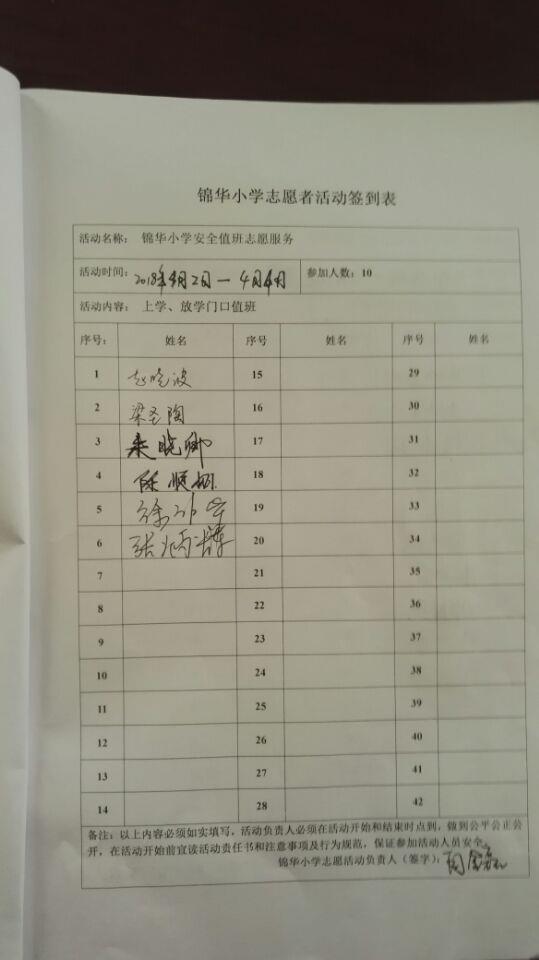 锦华小学志愿者活动签到表
活动名称: 锦华小学安全值班志愿服务
活动时间: 2018年4月2日 — 4月4日 参加人数: 10
活动内容: 上学、放学门口值班
序号: 姓名 序号 姓名 序号 姓名
1 赵晓波 15 29
2 梁圣陶 16 30
3 晓卿 17 31
4 陈顺 18 32
5 徐 19 33
6 张炳 20 34
7 21 35
8 22 36
9 23 37
10 24 38
11 25 39
12 26 40
13 27 41
14 28 42
备注: 以上内容必须如实填写,活动负责人必须在活动开始和结束时点到,做到公平公正公
开,在活动开始前宣读活动责任书和注意事项及行为规范,保证参加活动人员安全。
锦华小学志愿活动负责人(签字): 周